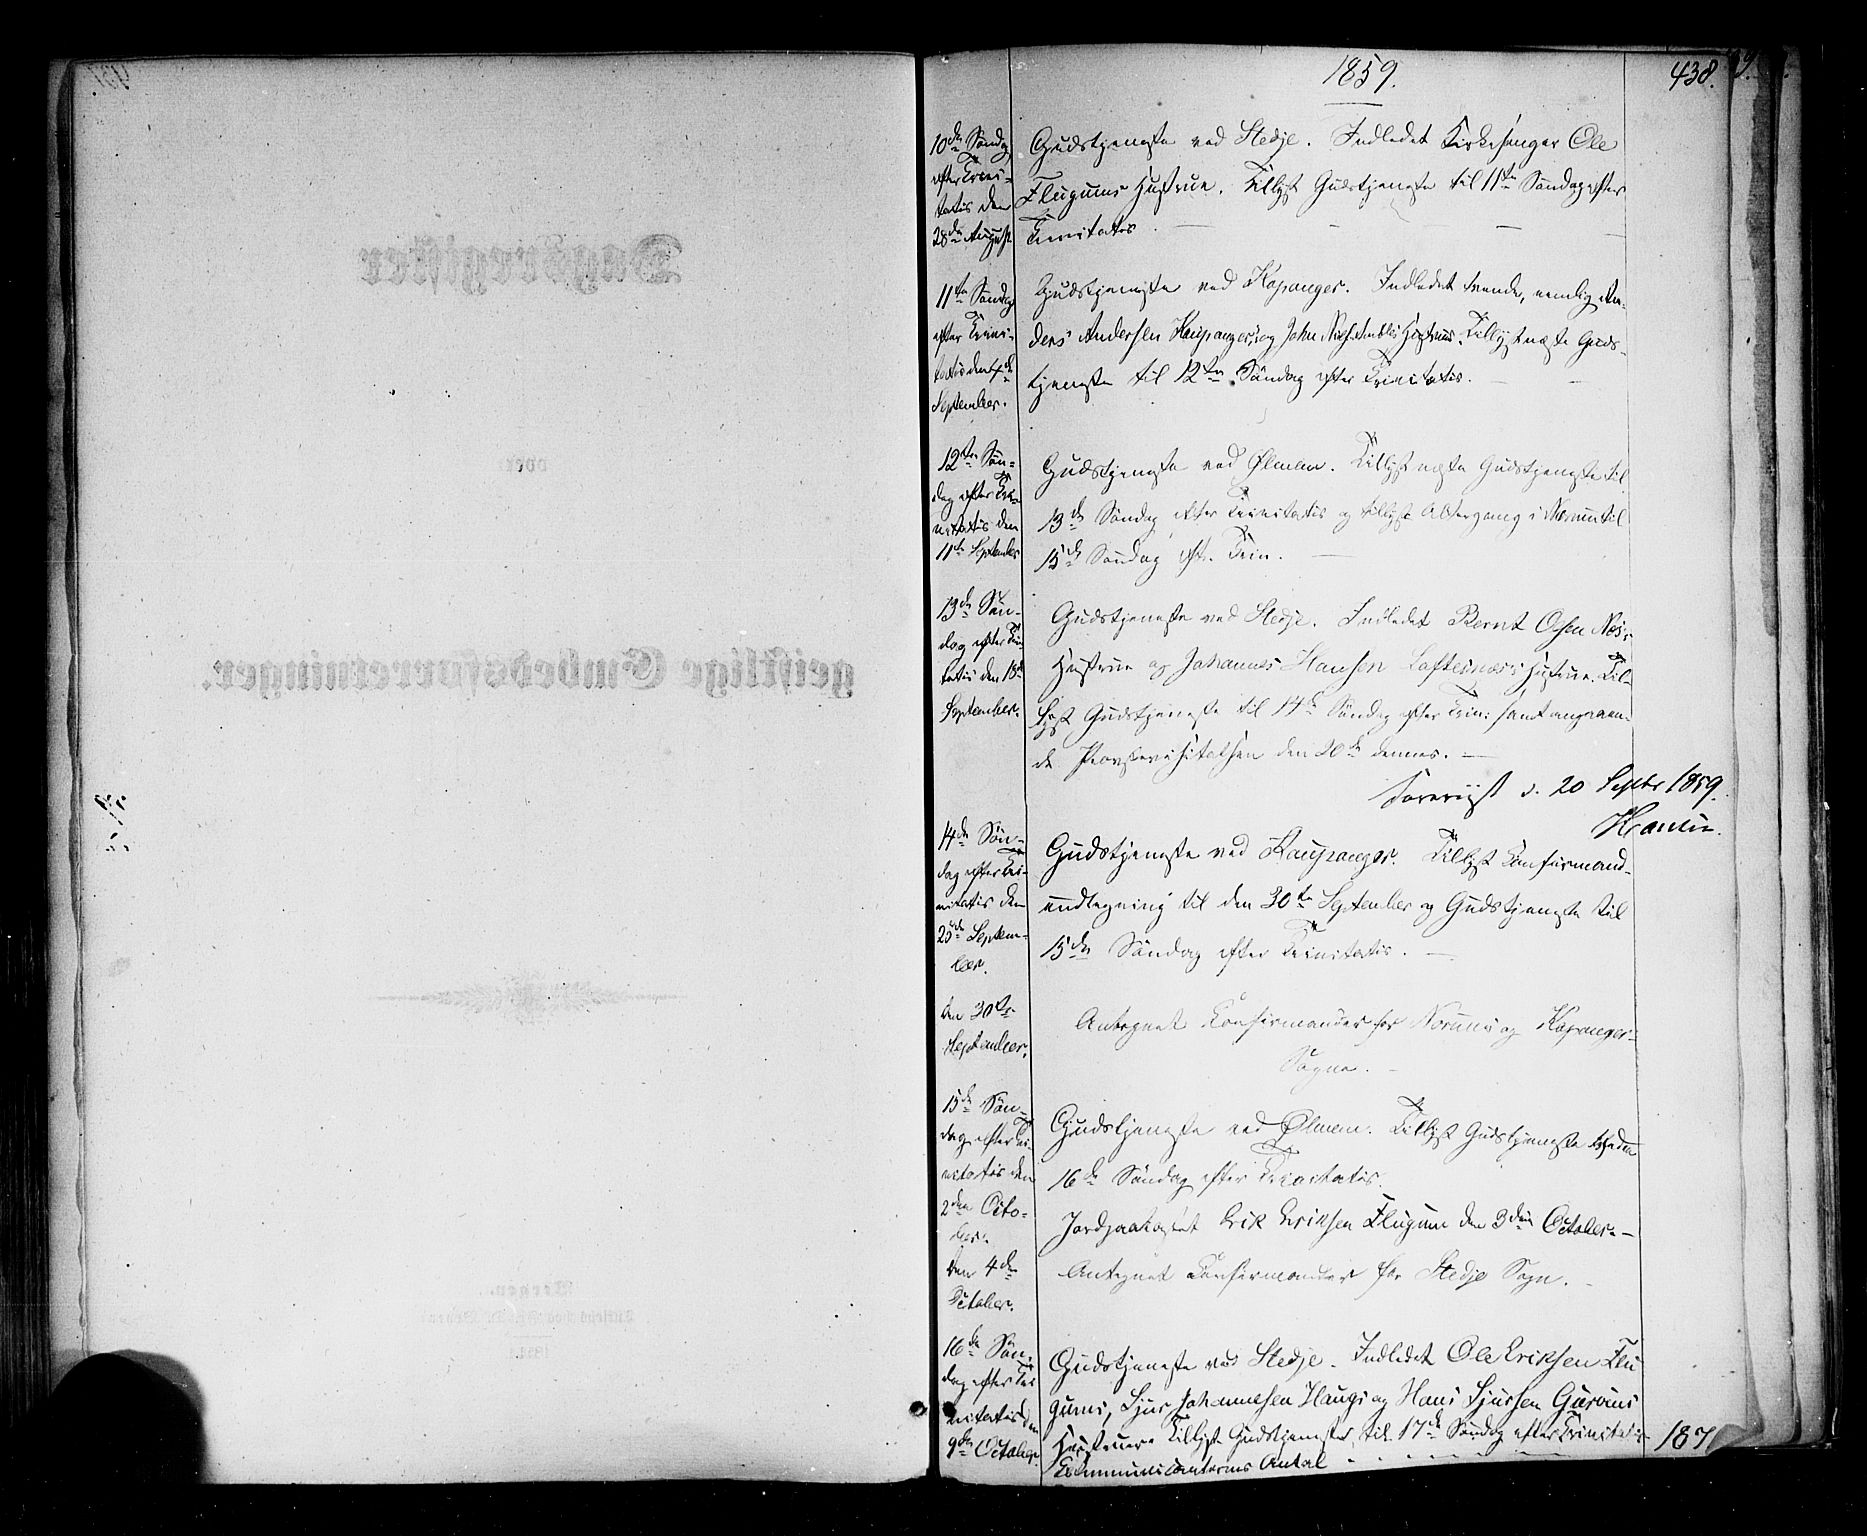 1859.
438.
10de Søndag
efter Trini-
tatis den
28de August
Gudstjeneste ved Stedje. Indledet Kirkesanger Ole
Flugums Hustrue. Tillyst Gudstjeneste til 11te Søndag efter
Trinitatis.
11te Søndag
efter Trini-
tatis den 4de
September.
Gudstjeneste ved Kapanger. Indledet tvende, nemlig An-
ders Andersen Kaupangers og John Niels. Ambles Hustruer. Tillyst næste Guds-
tjeneste til 12te Søndag efter Trinitatis.
12te Søn-
dag efter Tri-
nitatis den
11te September
Gudstjeneste ved Ølmem. Tillyst næste Gudstjeneste til
13de Søndag efter Trinitatis og tillyst Altergang i Norum til
15de Søndag eft. Trin.
13de Søn-
dag efter Trini-
tatis den 18de
September.
Gudstjeneste ved Stedje. Indledet Bernt Olsen Næs's
Hustrue og Johannes Hansen Loftesnæs's Hustrue. Til-
lyst Gudstjeneste til 14de Søndag efter Trin: samt angaaen-
de Provstevisitatsen den 20de dennes.
Foreviist d. 20 Septbr 1859.
14de Søn-
dag efter Tri-
nitatis den
25de Septem-
ber.
Gudstjeneste ved Kaupanger. Tillyst Confirmand-
undtegning til den 30te September og Gudstjeneste til
15de Søndag efter Trinitatis.
den 30te
September.
Antegnet Confirmander for Norums og Kapanger-
Sogne.
15de Søn-
dag efter Tri-
nitatis den
2den Octo-
ber.
Gudstjeneste ved Ølmem. Tillyst Gudstjeneste
16de Søndag efter Trinitatis.
Jordpaakastet Erik Eriksen Flugum den 3die October.
den 4de
October.
Antegnet Confirmander for Stedje Sogn.
16de Søn-
dag efter Tri-
nitatis den
9de October.
Gudstjeneste ved Stedje. Indledet Ole Eriksen Flu-
gums, Sjur Johannesen Haugs og Hans Sjursen Gurvins
Hustruer. Tillyst Gudstjeneste til 17de Søndag efter Trinitatis
Communicanternes Antal
187
Dagsregister
over
geistlige Embedsforretninger.
Bergen.